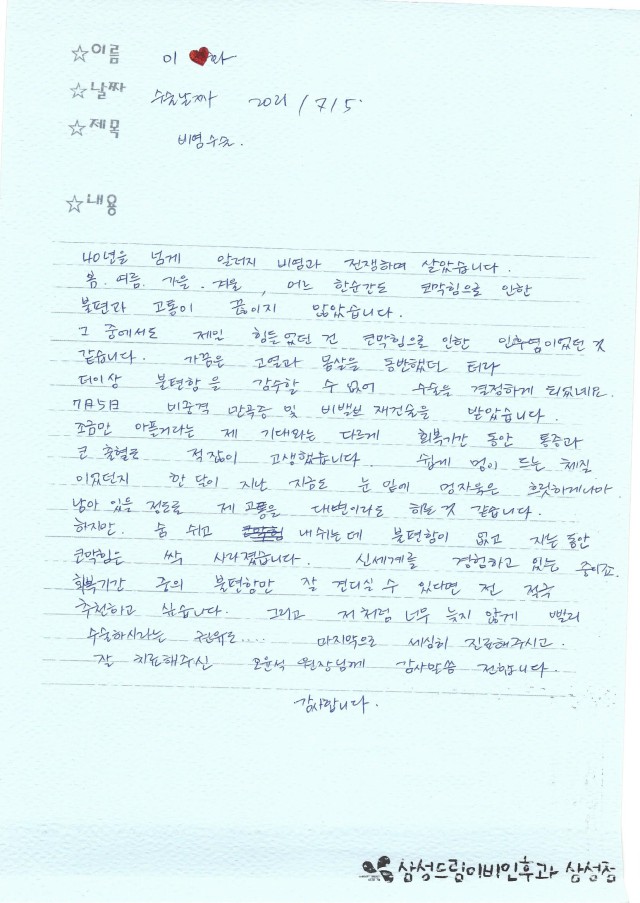 ☆이름 이 ♥화
☆날짜 수술날짜 2021/7/5.
☆제목 비염수술.
☆내용
40년을 넘게 알러지 비염과 전쟁하며 살았습니다.
봄. 여름. 가을. 겨울, 어느 한순간도 코막힘으로 인한
불편과 고통이 끊이지 않았습니다.
그 중에서도 제일 힘들었던 건 코막힘으로 인한 인후염이었던 것
같습니다. 가끔은 고열과 몸살을 동반했던 터라
더이상 불편함을 감수할 수 없어 수술을 결정하게 되었네요.
7月5日 비중격 만곡증 및 비밸브 재건술을 받았습니다.
조금만 아플거라는 제 기대와는 다르게 회복기간 동안 통증과
코 출혈로 적잖이 고생했습니다. 쉽게 멍이 드는 체질
이었던지 한 달이 지난 지금도 눈 밑에 멍자욱은 흐릿하게나마
남아 있을 정도로 제 고통을 대변이라도 하는 것 같습니다.
하지만. 숨 쉬고 내쉬는데 불편함이 없고 자는 동안
코막힘은 싹 사라졌습니다. 신세계를 경험하고 있는 중이죠.
회복기간 중의 불편함만 잘 견디실 수 있다면 전 적극
추천하고 싶습니다. 그리고 저처럼 너무 늦지 않게 빨리
수술하시라는 권유도.... 마지막으로 세심히 진료해주시고.
잘 치료해주신 오윤석 원장님께 감사말씀 전합니다.
감사합니다.
삼성드림이비인후과 삼성점